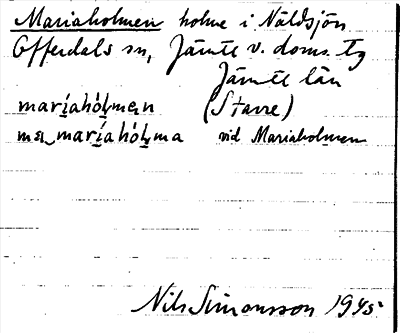 Mariaholmen holme i Näldsjön
Offerdals sn, Jämte v. doms. tg
Jämte län
maríahólmen (Stavre)
me maríahólma vid Mariaholmen
Nils Simonsson 1945